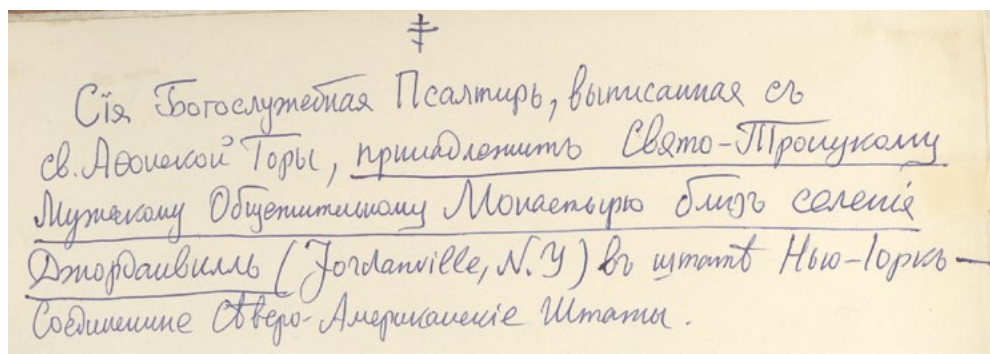 Сія Богослужебная Псалтирь, выписанная съ
св. Аѳонской Горы, принадлежитъ Свято-Троицкому
Мужскому Общежительному Монастырю близъ селенія
Джорданвилль (Jordanville, N.Y) въ штатѣ Нью-Іоркъ —
Соединенные Сѣверо-Американскіе Штаты.